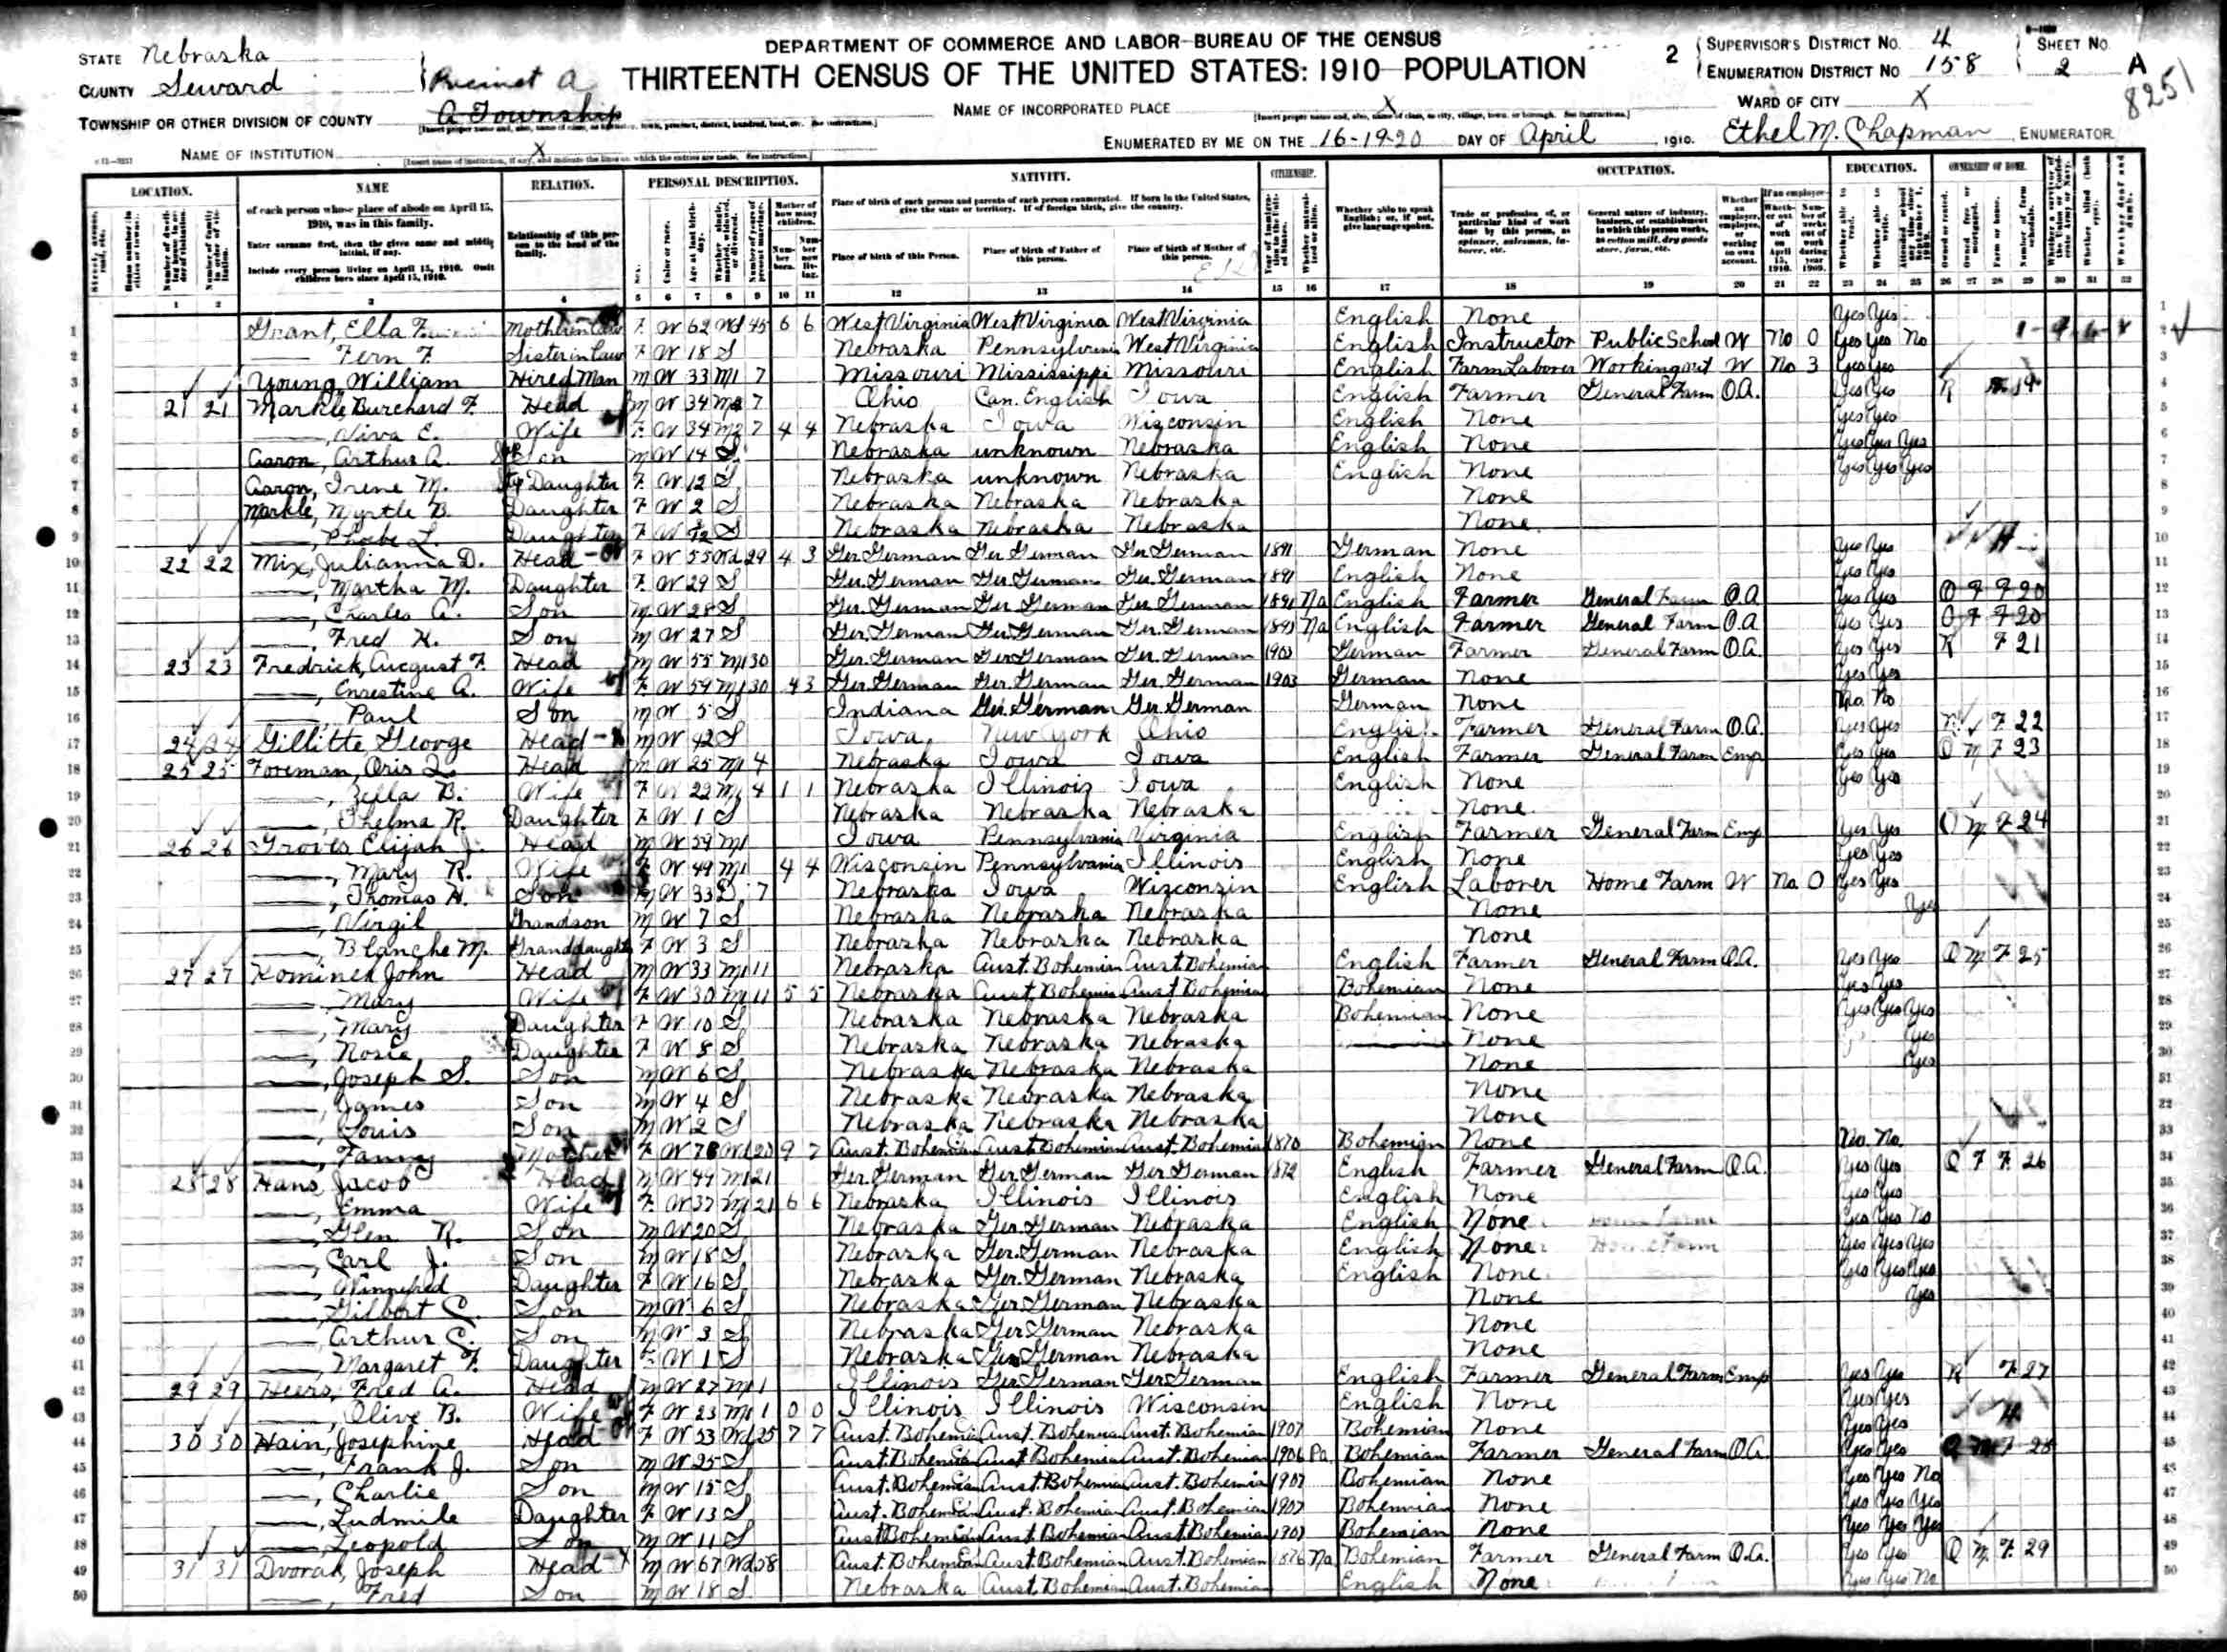 DEPARTMENT OF COMMERCE AND LABOR-BUREAU OF THE CENSUS
THIRTEENTH CENSUS OF THE UNITED STATES: 1910 POPULATION
STATE Nebraska
COUNTY Seward
Precinct A
TOWNSHIP OR OTHER DIVISION OF COUNTY A Township
NAME OF INSTITUTION X
NAME OF INCORPORATED PLACE X
ENUMERATED BY ME ON THE 16-19-20 DAY OF April, 1910.
2 SUPERVISOR'S DISTRICT NO. 4
ENUMERATION DISTRICT NO 158
SHEET NO. 2 A
8251
WARD OF CITY X
Ethel M. Chapman ENUMERATOR
LOCATION. NAME RELATION. PERSONAL DESCRIPTION. NATIVITY. CITIZENSHIP. OCCUPATION. EDUCATION. OWNERSHIP OF HOME.
of each person whose place of abode on April 15, 1910, was in this family.
Enter surname first, then the given name and middle initial, if any.
Include every person living on April 15, 1910. Omit children born since April 15, 1910.
Relationship of this person to the head of the family.
Place of birth of each person and parents of each person enumerated. If born in the United States, give the state or territory. If of foreign birth, give the country.
Place of birth of this Person. Place of birth of Father of this person. Place of birth of Mother of this person.
Whether able to speak English; or, if not, give language spoken.
1 2 3 4 5 6 7 8 9 10 11 12 13 14 15 16 17 18 19 20 21 22 23 24 25 26 27 28 29 30 31 32
1 Grant, Ella Mother in law F W 62 Wd 45 6 6 West Virginia West Virginia West Virginia English None Yes Yes
2 — Fern F. Sister in law F W 18 S Nebraska Pennsylvania West Virginia English Instructor Public School W No 0 Yes Yes No
3 Young, William Hired Man M W 33 M1 7 Missouri Mississippi Missouri English Farm Laborer Working out W No 3 Yes Yes
4 21 21 Markle Burchard F. Head M W 34 7 Ohio Can. English Iowa English Farmer General Farm O.A. Yes Yes R 19
5 —, Viva E. Wife F W 34 M2 7 4 4 Nebraska Iowa Wisconsin English None Yes Yes
6 Aaron, Arthur A. Son M W 14 S Nebraska unknown Nebraska English None Yes Yes Yes
7 Aaron, Irene M. Daughter F W 12 S Nebraska unknown Nebraska English None Yes Yes Yes
8 Markle, Myrtle B. Daughter F W 2 S Nebraska Nebraska Nebraska None
9 —, Phoebe L. Daughter F W S Nebraska Nebraska Nebraska None
10 22 22 Mix, Julianna D. Head F W 55 Wd 29 4 3 Ger. German Ger. German Ger. German 1891 German None Yes Yes H
11 —, Martha M. Daughter F W 29 S Ger. German Ger. German Ger. German 1891 English None Yes Yes
12 —, Charles A. Son M W 28 S Ger. German Ger. German Ger. German 1891 Na English Farmer General Farm O.A. Yes Yes O F F 20
13 —, Fred H. Son M W 27 S Ger. German Ger. German Ger. German 1891 Na English Farmer General Farm O.A. Yes Yes O F F 20
14 23 23 Fredrick, August F. Head M W 55 M1 30 Ger. German Ger. German Ger. German 1903 German Farmer General Farm O.A. Yes Yes R F 21
15 —, Ernestine A. Wife F W 59 M1 30 4 3 Ger. German Ger. German Ger. German 1903 German None Yes Yes
16 —, Paul Son M W 5 S Indiana Ger. German Ger. German German None No No
17 24 24 Gillitte, George Head M W 42 S Iowa New York Ohio English Farmer General Farm O.A. Yes Yes F 22
18 25 25 Foreman, Oris L. Head M W 25 M1 4 Nebraska Iowa Iowa English Farmer General Farm Emp Yes Yes O M F 23
19 —, Zella B. Wife F W 22 M1 4 1 1 Nebraska Illinois Iowa English None Yes Yes
20 —, Thelma R. Daughter F W 1 S Nebraska Nebraska Nebraska None
21 26 26 Groves Elijah J. Head M W 59 M1 Iowa Pennsylvania Virginia English Farmer General Farm Emp Yes Yes O M F 24
22 —, Mary R. Wife F W 49 M1 4 4 Wisconsin Pennsylvania Illinois English None Yes Yes
23 —, Thomas H. Son M W 33 D 7 Nebraska Iowa Wisconsin English Laborer Home Farm W No 0 Yes Yes
24 —, Virgil Grandson M W 7 S Nebraska Nebraska Nebraska None Yes
25 —, Blanche M. Granddaughter F W 3 S Nebraska Nebraska Nebraska None
26 27 27 Kominek John Head M W 33 M1 11 Nebraska Aust. Bohemian Aust. Bohemian English Farmer General Farm O.A. Yes Yes O M F 25
27 —, Mary Wife F W 30 M1 11 5 5 Nebraska Aust. Bohemian Aust. Bohemian Bohemian None Yes Yes
28 —, Mary Daughter F W 10 S Nebraska Nebraska Nebraska Bohemian None Yes Yes Yes
29 —, Rosie Daughter F W 8 S Nebraska Nebraska Nebraska None Yes
30 —, Joseph S. Son M W 6 S Nebraska Nebraska Nebraska None Yes
31 —, James Son M W 4 S Nebraska Nebraska Nebraska None
32 —, Louis Son M W 2 S Nebraska Nebraska Nebraska None
33 —, Fanny Mother F W Wd 20 9 7 Aust. Bohemian Aust. Bohemian Aust. Bohemian 1870 Bohemian None No No
34 28 28 Hans, Jacob Head M W 49 M1 21 Ger. German Ger. German Ger. German 1872 English Farmer General Farm O.A. Yes Yes O F F 26
35 —, Emma Wife F W 37 M1 21 6 6 Nebraska Illinois Illinois English None Yes Yes
36 —, Glen R. Son M W 20 S Nebraska Ger. German Nebraska English None Yes Yes No
37 —, Carl J. Son M W 18 S Nebraska Ger. German Nebraska English None Home Farm Yes Yes Yes
38 —, Winnefred Daughter F W 16 S Nebraska Ger. German Nebraska English None Yes Yes Yes
39 —, Gilbert C. Son M W 6 S Nebraska Ger. German Nebraska None Yes
40 — Arthur C. Son M W 3 S Nebraska Ger. German Nebraska None
41 —, Margaret F. Daughter F W 1 S Nebraska Ger. German Nebraska None
42 29 29 Heers, Fred A. Head M W 27 M1 1 Illinois Ger. German Ger. German English Farmer General Farm Emp Yes Yes R F 27
43 —, Olive B. Wife F W 23 M1 1 0 0 Illinois Illinois Wisconsin English None Yes Yes
44 30 30 Hain, Josephine Head F W 53 Wd 25 7 7 Aust. Bohemian Aust. Bohemian Aust. Bohemian 1907 Bohemian None Yes Yes H
45 —, Frank J. Son M W 25 S Aust. Bohemian Aust. Bohemian Aust. Bohemian 1906 Pa Bohemian Farmer General Farm O.A. Yes Yes O M F 28
46 —, Charlie Son M W 15 S Aust. Bohemian Aust. Bohemian Aust. Bohemian 1907 Bohemian None Yes Yes No
47 —, Ludmile Daughter F W 13 S Aust. Bohemian Aust. Bohemian Aust. Bohemian 1907 Bohemian None Yes Yes Yes
48 —, Leopold Son M W 11 S Aust. Bohemian Aust. Bohemian Aust. Bohemian 1907 Bohemian None Yes Yes Yes
49 31 31 Dvorak, Joseph Head M W 67 Wd 38 Aust. Bohemian Aust. Bohemian Aust. Bohemian 1876 Na Bohemian Farmer General Farm O.A. Yes Yes O M F 29
50 —, Fred Son M W 18 S Nebraska Aust. Bohemian Aust. Bohemian English None Yes Yes No